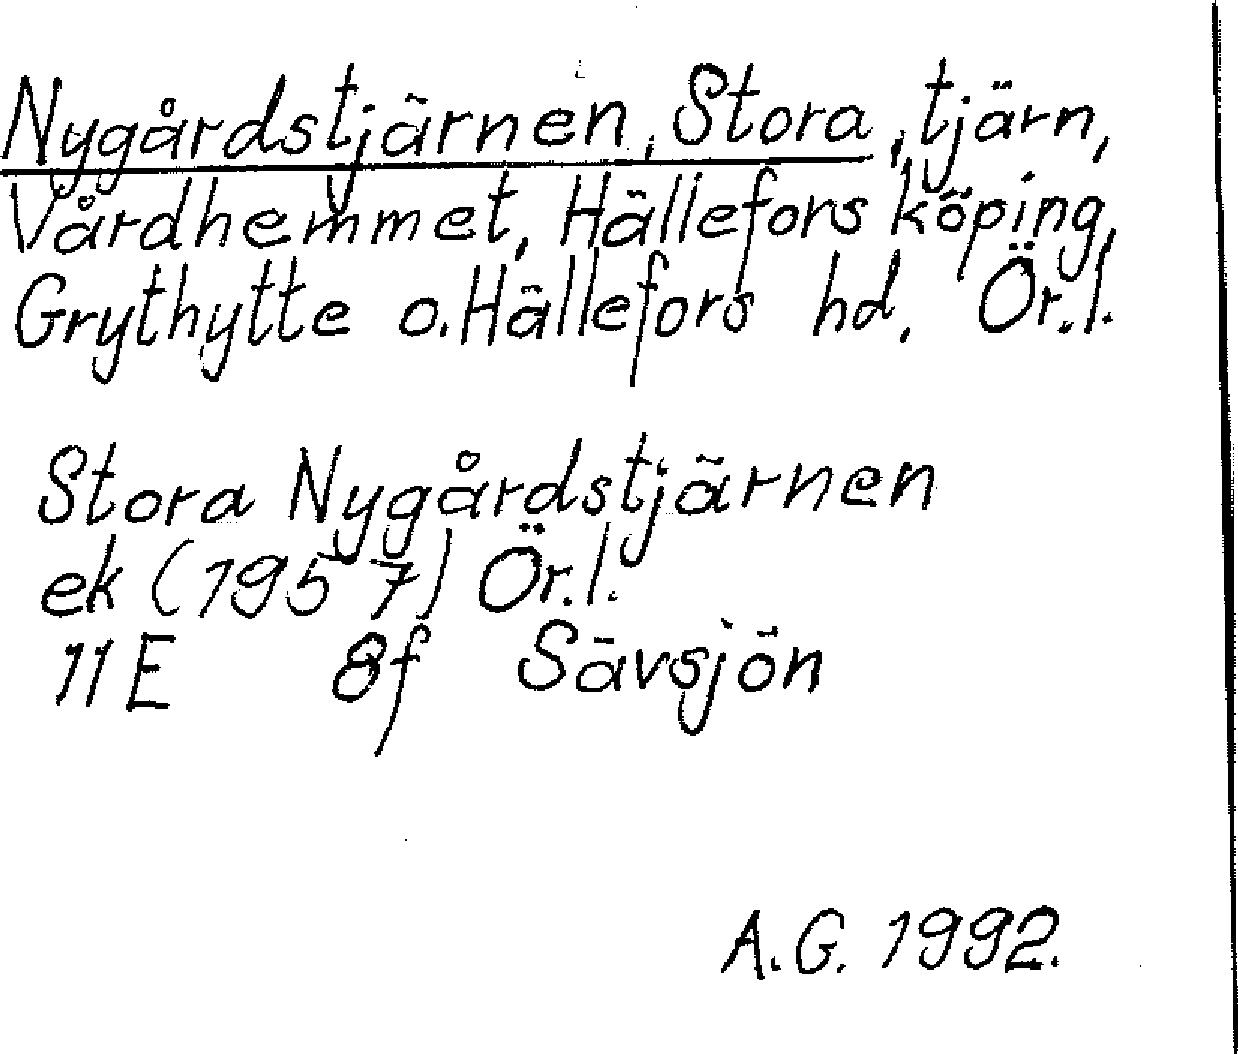 Nygårdstjärnen, Stora, tjärn,
Vårdhemmet, Hällefors köping,
Grythytte o. Hällefors hd. Ör.l.
Stora Nygårdstjärnen
ek (1957) Ör.l.
11E 8f Sävsjön
A.G. 1992.